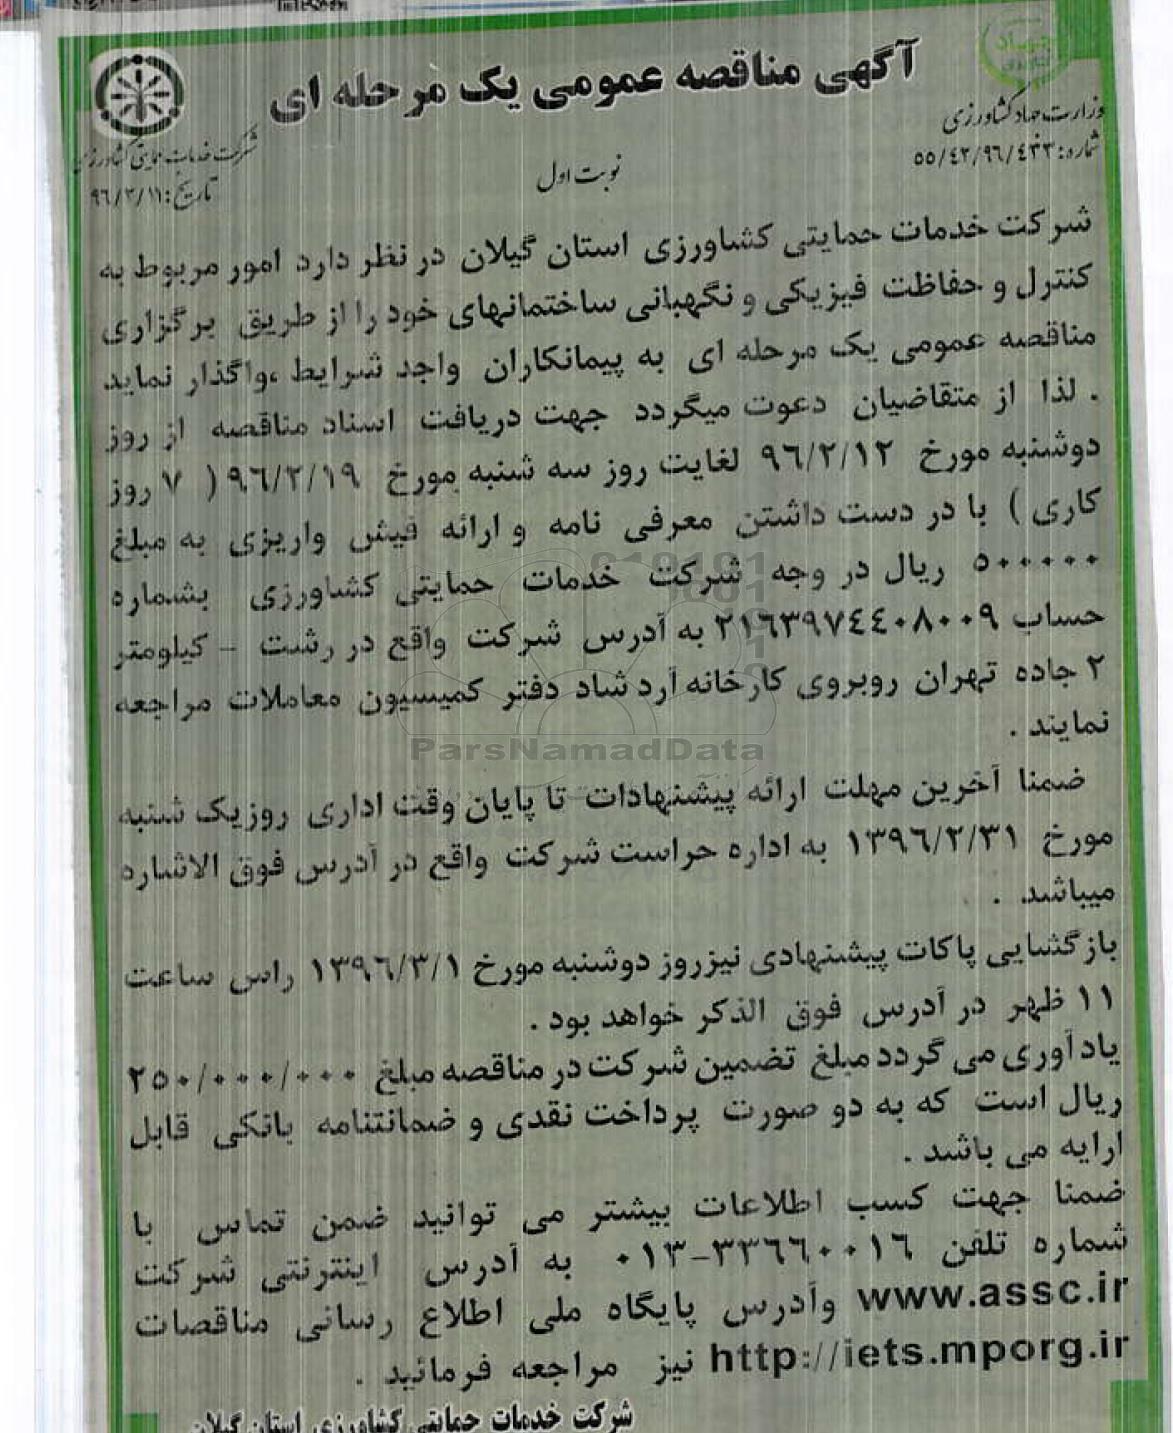 آگهی مناقصه عمومی یک مرحله ای
وزارت جهاد کشاورزی
شماره: ۵۵/۴۲/۹۶/۴۳۳
شرکت خدمات حمایتی کشاورزی
تاریخ: ۹۶/۲/۱۱
نوبت اول
شرکت خدمات حمایتی کشاورزی استان گیلان در نظر دارد امور مربوط به
کنترل و حفاظت فیزیکی و نگهبانی ساختمانهای خود را از طریق برگزاری
مناقصه عمومی یک مرحله ای به پیمانکاران واجد شرایط ،واگذار نماید
. لذا از متقاضیان دعوت میگردد جهت دریافت اسناد مناقصه از روز
دوشنبه مورخ ۹۶/۲/۱۲ لغایت روز سه شنبه مورخ ۹۶/۲/۱۹ ( ۷ روز
کاری ) با در دست داشتن معرفی نامه و ارائه فیش واریزی به مبلغ
۵۰۰۰۰۰ ریال در وجه شرکت خدمات حمایتی کشاورزی بشماره
حساب ۲۱۶۳۹۷۴۴۰۸۰۰۹ به آدرس شرکت واقع در رشت - کیلومتر
۲ جاده تهران روبروی کارخانه آرد شاد دفتر کمیسیون معاملات مراجعه
نمایند .
ParsNamadData
ضمنا آخرین مهلت ارائه پیشنهادات تا پایان وقت اداری روزیک شنبه
مورخ ۱۳۹۶/۲/۳۱ به اداره حراست شرکت واقع در آدرس فوق الاشاره
میباشد .
بازگشایی پاکات پیشنهادی نیزروز دوشنبه مورخ ۱۳۹۶/۳/۱ راس ساعت
۱۱ ظهر در آدرس فوق الذکر خواهد بود .
یادآوری می گردد مبلغ تضمین شرکت در مناقصه مبلغ ۲۵۰/۰۰۰/۰۰۰
ریال است که به دو صورت پرداخت نقدی و ضمانتنامه بانکی قابل
ارایه می باشد .
ضمنا جهت کسب اطلاعات بیشتر می توانید ضمن تماس با
شماره تلفن ۳۳۶۶۰۰۱۶-۰۱۳ به آدرس اینترنتی شرکت
www.assc.ir وآدرس پایگاه ملی اطلاع رسانی مناقصات
http://iets.mporg.ir نیز مراجعه فرمائید .
شرکت خدمات حمایتی کشاورزی استان گیلان